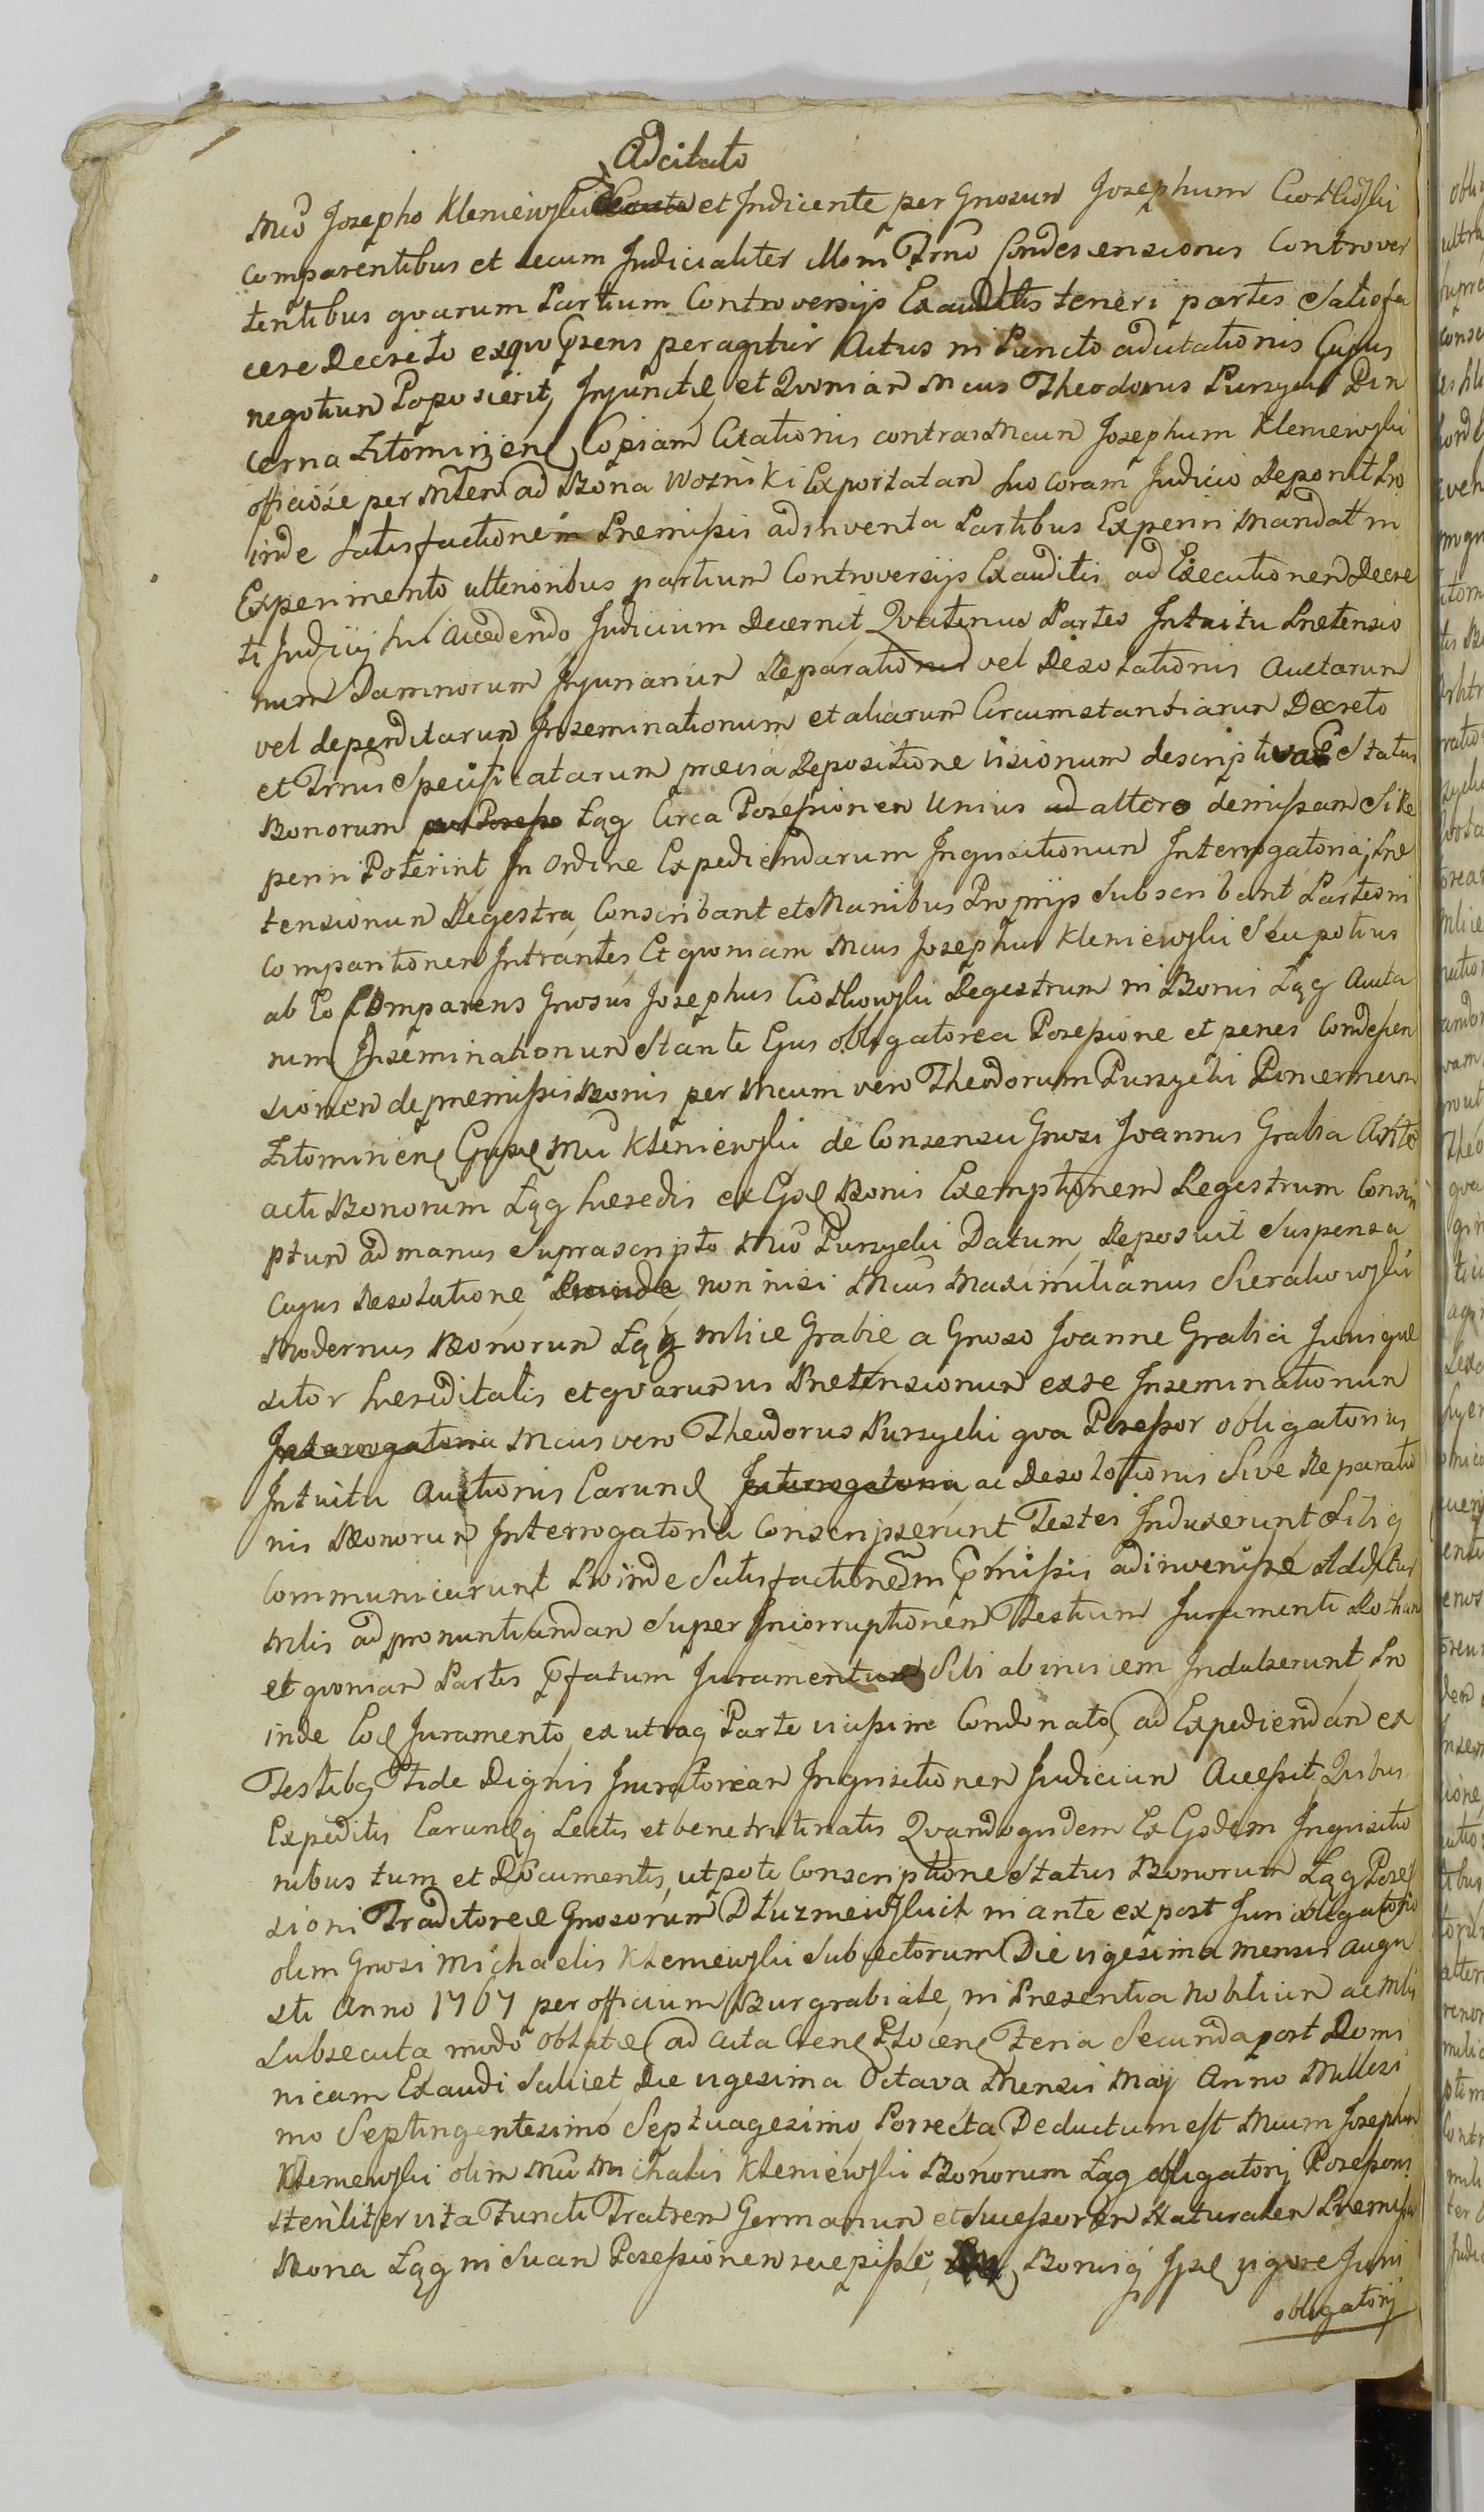 Adcitato
Mco Josepho Kleniewski et Indicente per Gnosum Josephum Ciostkowski
comparentibus et secum Judicialiter illom Trno Condescensionis Controver
tentibus quarum Partium Controversijs Exauditis teneri partes Satisfa
cere Decreto exquo Prens peragitur Actus in Puncto adcitationis Cujus
negotium Poposcerit, Injunctae, et Quoniam Mcus Theodorus Purzycki Pin
cerna Zytomiriens Copiam Citationis contra Mcum Josephum Kleniewski
officiose per Mtem ad Bona Wozniki Exportatam suo coram Judicio Deponit Pro
inde Satisfactionem Premissis adinventa Partibus Experiri Mandat in
Experimento ulterioribus partium Controversijs Exauditis ad Executionem Decre
ti Judicij sui Accedendo Judicium Decernit Quatinus Partes Intuitu Pretensio
num Damnorum Injuriarum Reparationis vel Desolationis Auctarum
vel deperditarum Inseminationum et aliarum Circumstantiarum Decreto
et Trnis Specificatarum previa Depositione visionum descriptivae Status
Bonorum Łąg Circa Possessionem Unius ad altero demissam Si Re
periri Poterint In Ordine Expediendarum Inquisitionum Interrogatoria, Pre
tensionum Regestra, Conscribant et Manibus Proprijs Subscribant Partes in
Comparitionem Intrantes Et quoniam Mcus Josephus Kleniewski Seu potius
ab Eo Comparens Gnosus Josephus Ciostkowski Regestrum in Bonis Łąg Aucta
rum Inseminationum Stante Ejus obligatorea Possessione et penes Condescen
sionem de premissis Bonis per Mcum vero Theodorum Purzycki Pincernam
Zytomiriens Ejusd Mci Kleniewski de Consensu Gnosi Joannis Grabia Ante
acti Bonorum Łąg heredis ex Ejsd Bonis Exemptionem Regestrum Conscri
ptum ad manus Suprascripto Mco Purzycki Datum, Deposuit Suspensa
Cujus Resolutione Proinde, non nisi Mcus Maximilianus Sierakowski
Modernus Bonorum Łąg Mlice Grabie a Gnoso Joanne Grabia Juris que
sitor hereditatis et quarumvis Pretensionum exre Inseminationum
Interrogatoria Mcus vero Theodorus Purzycki qua Possessor obligatorius,
Intuitu Auctionis Earund Interrogatoria, ac Desolationis Sive Reparatio
nis Bonorum Interrogatoria Conscripserunt Testes Induxerunt Sibiq
Communicarunt Proinde Satisfactionem Pmissis adinvenisse Addictus
Mlis ad pronuntiandam Super Incorruptionem Testium Juramenti Rotham
et quoniam Partes Pfatum Juramentum Sibi abinvicem Indulserunt, Pro
inde Eod Juramento, ex utraq Parte vicissim Condonato ad Expediendam ex
Testibq Fide Dignis Juratoriam Inquisitionem Judicium Accessit, Quibus
Expeditis Earundq Lectis et bene trutinatis Quandoquidem Ex Ejsdem Inquisitio
nibus tum et Documentis, utpote Conscriptione Status Bonorum Łąg Poses
sioni Traditorece Gnosorum Dłuzniewskich in ante ex post Juri obligatorio
olim Gnosi Michaelis Kleniewski Subjectorum Die vigesima mensis Augu
sti Anno 1767 per officium Burgrabiale, in Presentia Nobilium ac Mlis
Subsecuta modo oblatae ad Acta Crens Plocens Feria Secunda post Domi
nicam Exaudi Scilicet Die vigesima Octava Mensis Maij Anno Millesi
mo Septingentesimo Septuagesimo Porrecta, Deductum est Mcum Josephum
Kleniewski olim Mci Michalis Kleniewski Bonorum Łąg obligatorij Possessoris
steriliter vita Functi Fratrem Germanum et Successorem Naturalem Premissa
Bona Łąg in Suam Possessionem recepisse, Bonisq Ipse vigore Juris
obligatorij